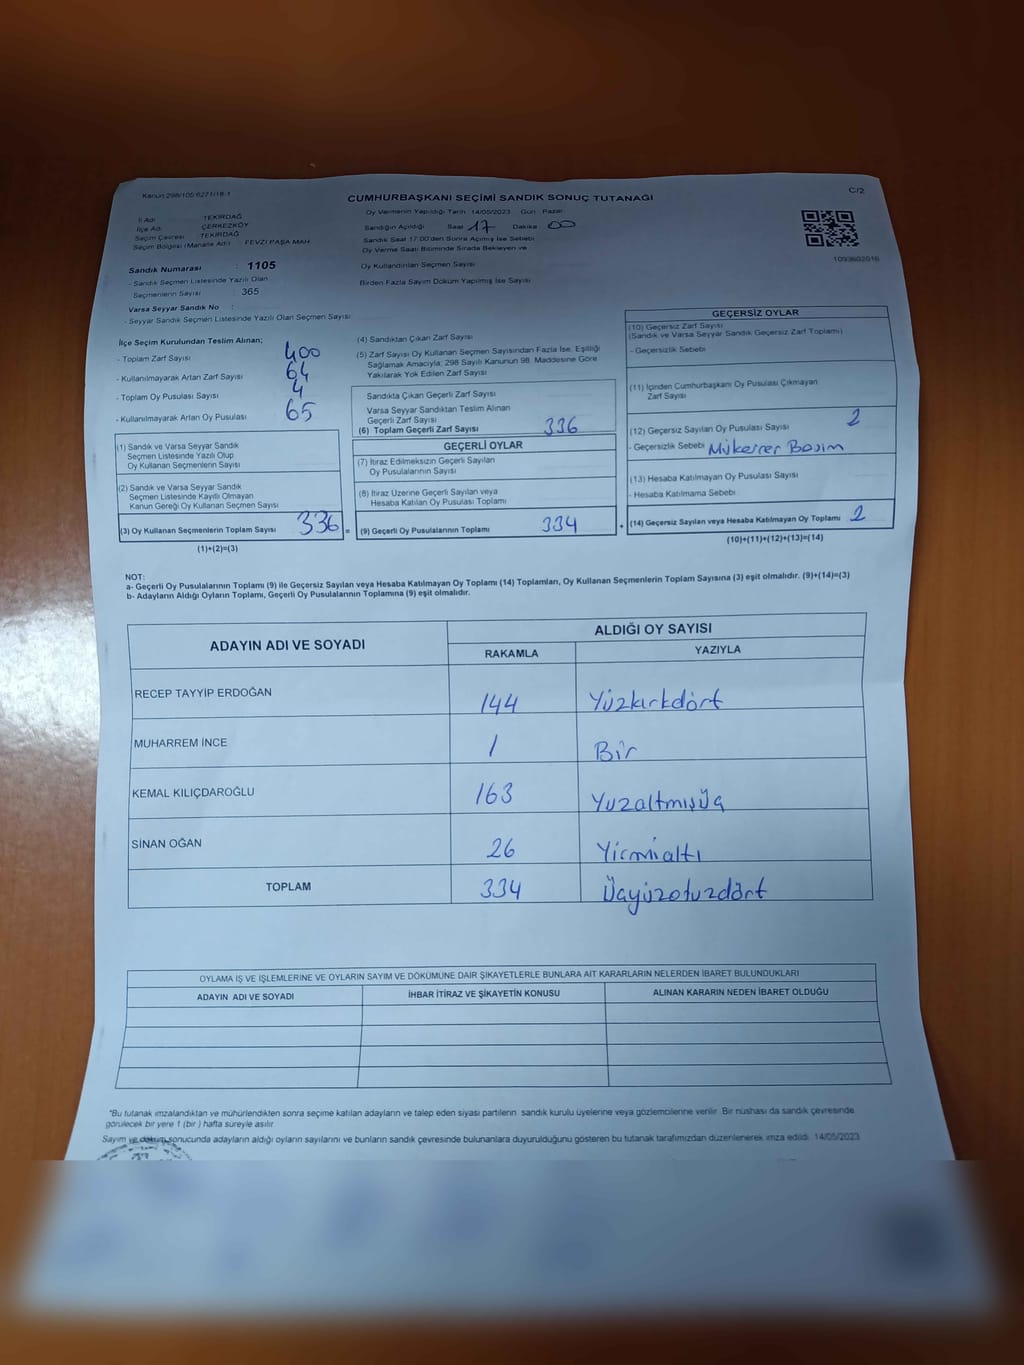 Kanun:298/105/6271/18-1
C/2
CUMHURBAŞKANI SEÇİMİ SANDIK SONUÇ TUTANAĞI
İl Adı : TEKİRDAĞ
İlçe Adı : ÇERKEZKÖY
Seçim Çevresi : TEKİRDAĞ
Seçim Bölgesi (Mahalle Adı) : FEVZİ PAŞA MAH.
Oy Vermenin Yapıldığı Tarih 14/05/2023 Gün Pazar
Sandığın Açıldığı Saat 17 Dakika 00
Sandık Saat 17:00'den Sonra Açılmış İse Sebebi
Oy Verme Saati Bitiminde Sırada Bekleyen ve
Oy Kullandırılan Seçmen Sayısı
Birden Fazla Sayım Döküm Yapılmış İse Sayısı
1093602016
Sandık Numarası : 1105
- Sandık Seçmen Listesinde Yazılı Olan
Seçmenlerin Sayısı : 365
Varsa Seyyar Sandık No :
- Seyyar Sandık Seçmen Listesinde Yazılı Olan Seçmen Sayısı
İlçe Seçim Kurulundan Teslim Alınan;
- Toplam Zarf Sayısı 400
- Kullanılmayarak Artan Zarf Sayısı 64
- Toplam Oy Pusulası Sayısı 4
- Kullanılmayarak Artan Oy Pusulası 65
(1) Sandık ve Varsa Seyyar Sandık
Seçmen Listesinde Yazılı Olup
Oy Kullanan Seçmenlerin Sayısı
(2) Sandık ve Varsa Seyyar Sandık
Seçmen Listesinde Kayıtlı Olmayan
Kanun Gereği Oy Kullanan Seçmen Sayısı
(3) Oy Kullanan Seçmenlerin Toplam Sayısı 336 =
(1)+(2)=(3)
(4) Sandıktan Çıkan Zarf Sayısı
(5) Zarf Sayısı Oy Kullanan Seçmen Sayısından Fazla İse, Eşitliği
Sağlamak Amacıyla; 298 Sayılı Kanunun 98. Maddesine Göre
Yakılarak Yok Edilen Zarf Sayısı
Sandıkta Çıkan Geçerli Zarf Sayısı
Varsa Seyyar Sandıktan Teslim Alınan
Geçerli Zarf Sayısı
(6) Toplam Geçerli Zarf Sayısı 336
GEÇERLİ OYLAR
(7) İtiraz Edilmeksizin Geçerli Sayılan
Oy Pusulalarının Sayısı
(8) İtiraz Üzerine Geçerli Sayılan veya
Hesaba Katılan Oy Pusulası Toplamı
(9) Geçerli Oy Pusulalarının Toplamı 334 +
GEÇERSİZ OYLAR
(10) Geçersiz Zarf Sayısı
(Sandık ve Varsa Seyyar Sandık Geçersiz Zarf Toplamı)
- Geçersizlik Sebebi
(11) İçinden Cumhurbaşkanı Oy Pusulası Çıkmayan
Zarf Sayısı
(12) Geçersiz Sayılan Oy Pusulası Sayısı 2
- Geçersizlik Sebebi Mükerrer Basım
(13) Hesaba Katılmayan Oy Pusulası Sayısı
- Hesaba Katılmama Sebebi
(14) Geçersiz Sayılan veya Hesaba Katılmayan Oy Toplamı 2
(10)+(11)+(12)+(13)=(14)
NOT:
a- Geçerli Oy Pusulalarının Toplamı (9) ile Geçersiz Sayılan veya Hesaba Katılmayan Oy Toplamı (14) Toplamları, Oy Kullanan Seçmenlerin Toplam Sayısına (3) eşit olmalıdır. (9)+(14)=(3)
b- Adayların Aldığı Oyların Toplamı, Geçerli Oy Pusulalarının Toplamına (9) eşit olmalıdır.
ADAYIN ADI VE SOYADI
ALDIĞI OY SAYISI
RAKAMLA YAZIYLA
RECEP TAYYİP ERDOĞAN 144 Yüzkırkdört
MUHARREM İNCE 1 Bir
KEMAL KILIÇDAROĞLU 163 Yuzaltmışüç
SİNAN OĞAN 26 Yirmialtı
TOPLAM 334 Üçyüzotuzdört
OYLAMA İŞ VE İŞLEMLERİNE VE OYLARIN SAYIM VE DÖKÜMÜNE DAİR ŞİKAYETLERLE BUNLARA AİT KARARLARIN NELERDEN İBARET BULUNDUKLARI
ADAYIN ADI VE SOYADI İHBAR İTİRAZ VE ŞİKAYETİN KONUSU ALINAN KARARIN NEDEN İBARET OLDUĞU
*Bu tutanak imzalandıktan ve mühürlendikten sonra seçime katılan adayların ve talep eden siyasi partilerin sandık kurulu üyelerine veya gözlemcilerine verilir. Bir nüshası da sandık çevresinde
görülecek bir yere 1 (bir ) hafta süreyle asılır.
Sayım ve döküm sonucunda adayların aldığı oyların sayılarını ve bunların sandık çevresinde bulunanlara duyurulduğunu gösteren bu tutanak tarafımızdan düzenlenerek imza edildi. 14/05/2023